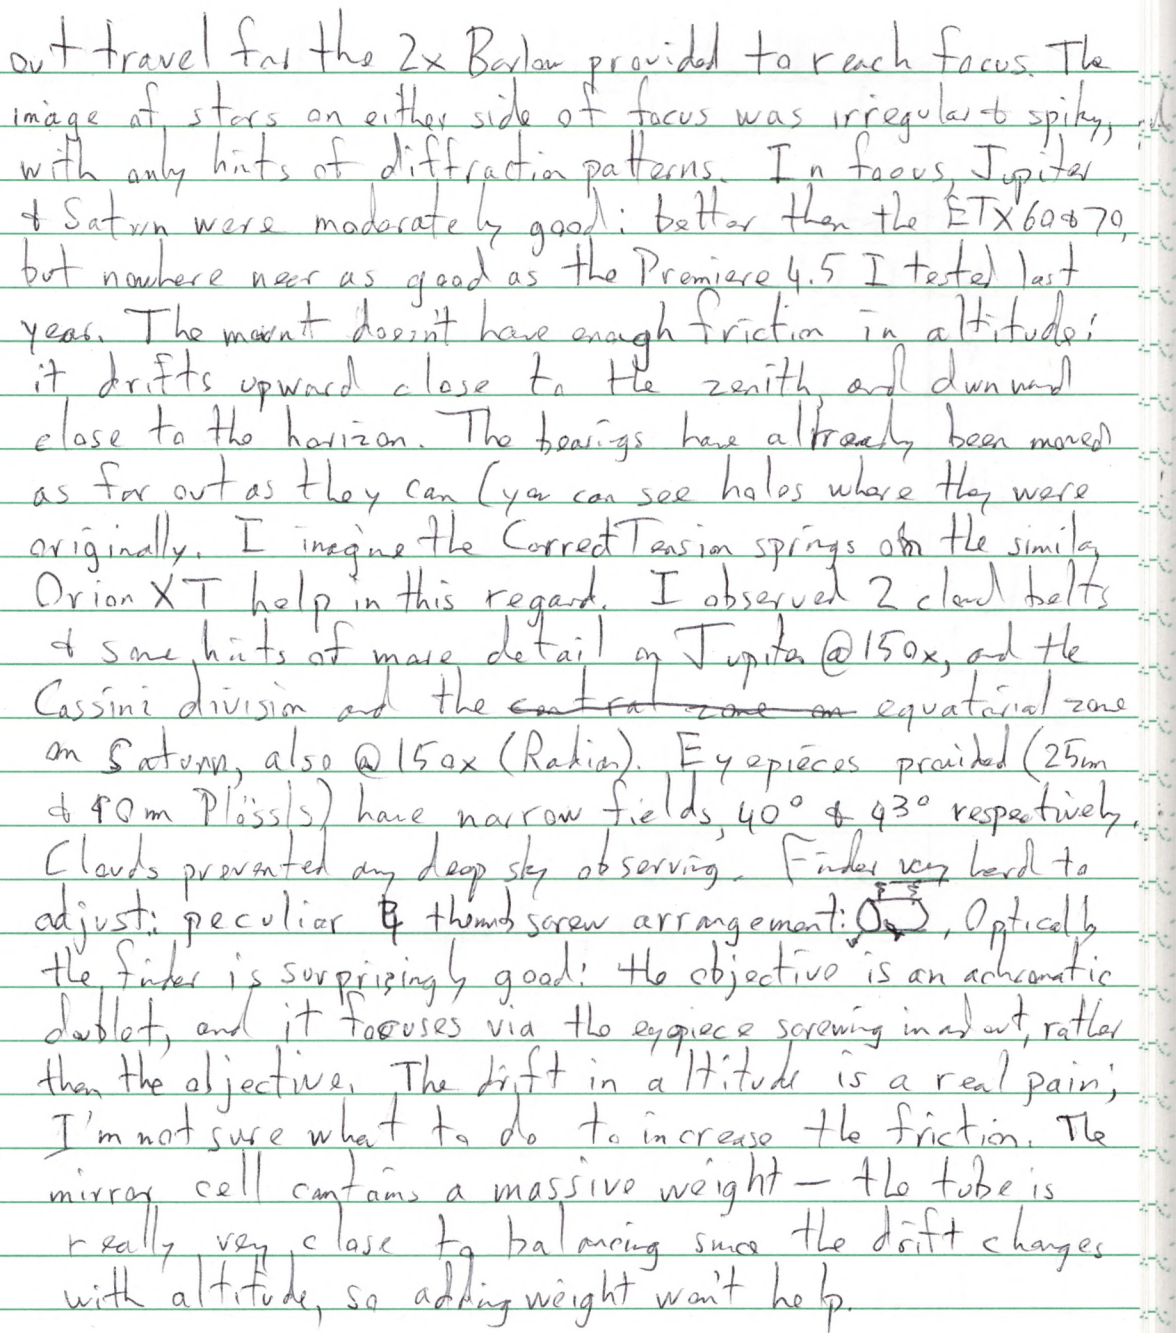 out travel for the 2x Barlow provided to reach focus. The
image of stars on either side of focus was irregular & spiky,
with only hints of diffraction patterns. In focus, Jupiter
& Saturn were moderately good: better than the ETX 60 & 70,
but nowhere near as good as the Premiere 4.5 I tested last
year. The mount doesn't have enough friction in altitude:
it drifts upward close to the zenith, and dwnward
close to the horizon. The bearings have already been moved
as far out as they can (you can see holes where they were
originally. I imagine the CorrecTension springs on the similar
Orion XT help in this regard. I observed 2 cloud belts
& some hints of more detail on Jupiter @ 150x, and the
Cassini division and the central zone on equatorial zone
on Saturn, also @ 150x (Radian). Eyepieces provided (25mm
& 10mm Plössls) have narrow fields, 40° & 43° respectively.
Clouds prevented any deep sky observing. Finder very hard to
adjust: peculiar thumbscrew arrangement: . Optically
the finder is surprizingly good: the objective is an achromatic
doublet, and it focuses via the eyepiece screwing in and out, rather
than the objective. The drift in altitude is a real pain;
I'm not sure what to do to increase the friction. The
mirror cell contains a massive weight — the tube is
really very close to balancing since the drift changes
with altitude, so adding weight won't help.